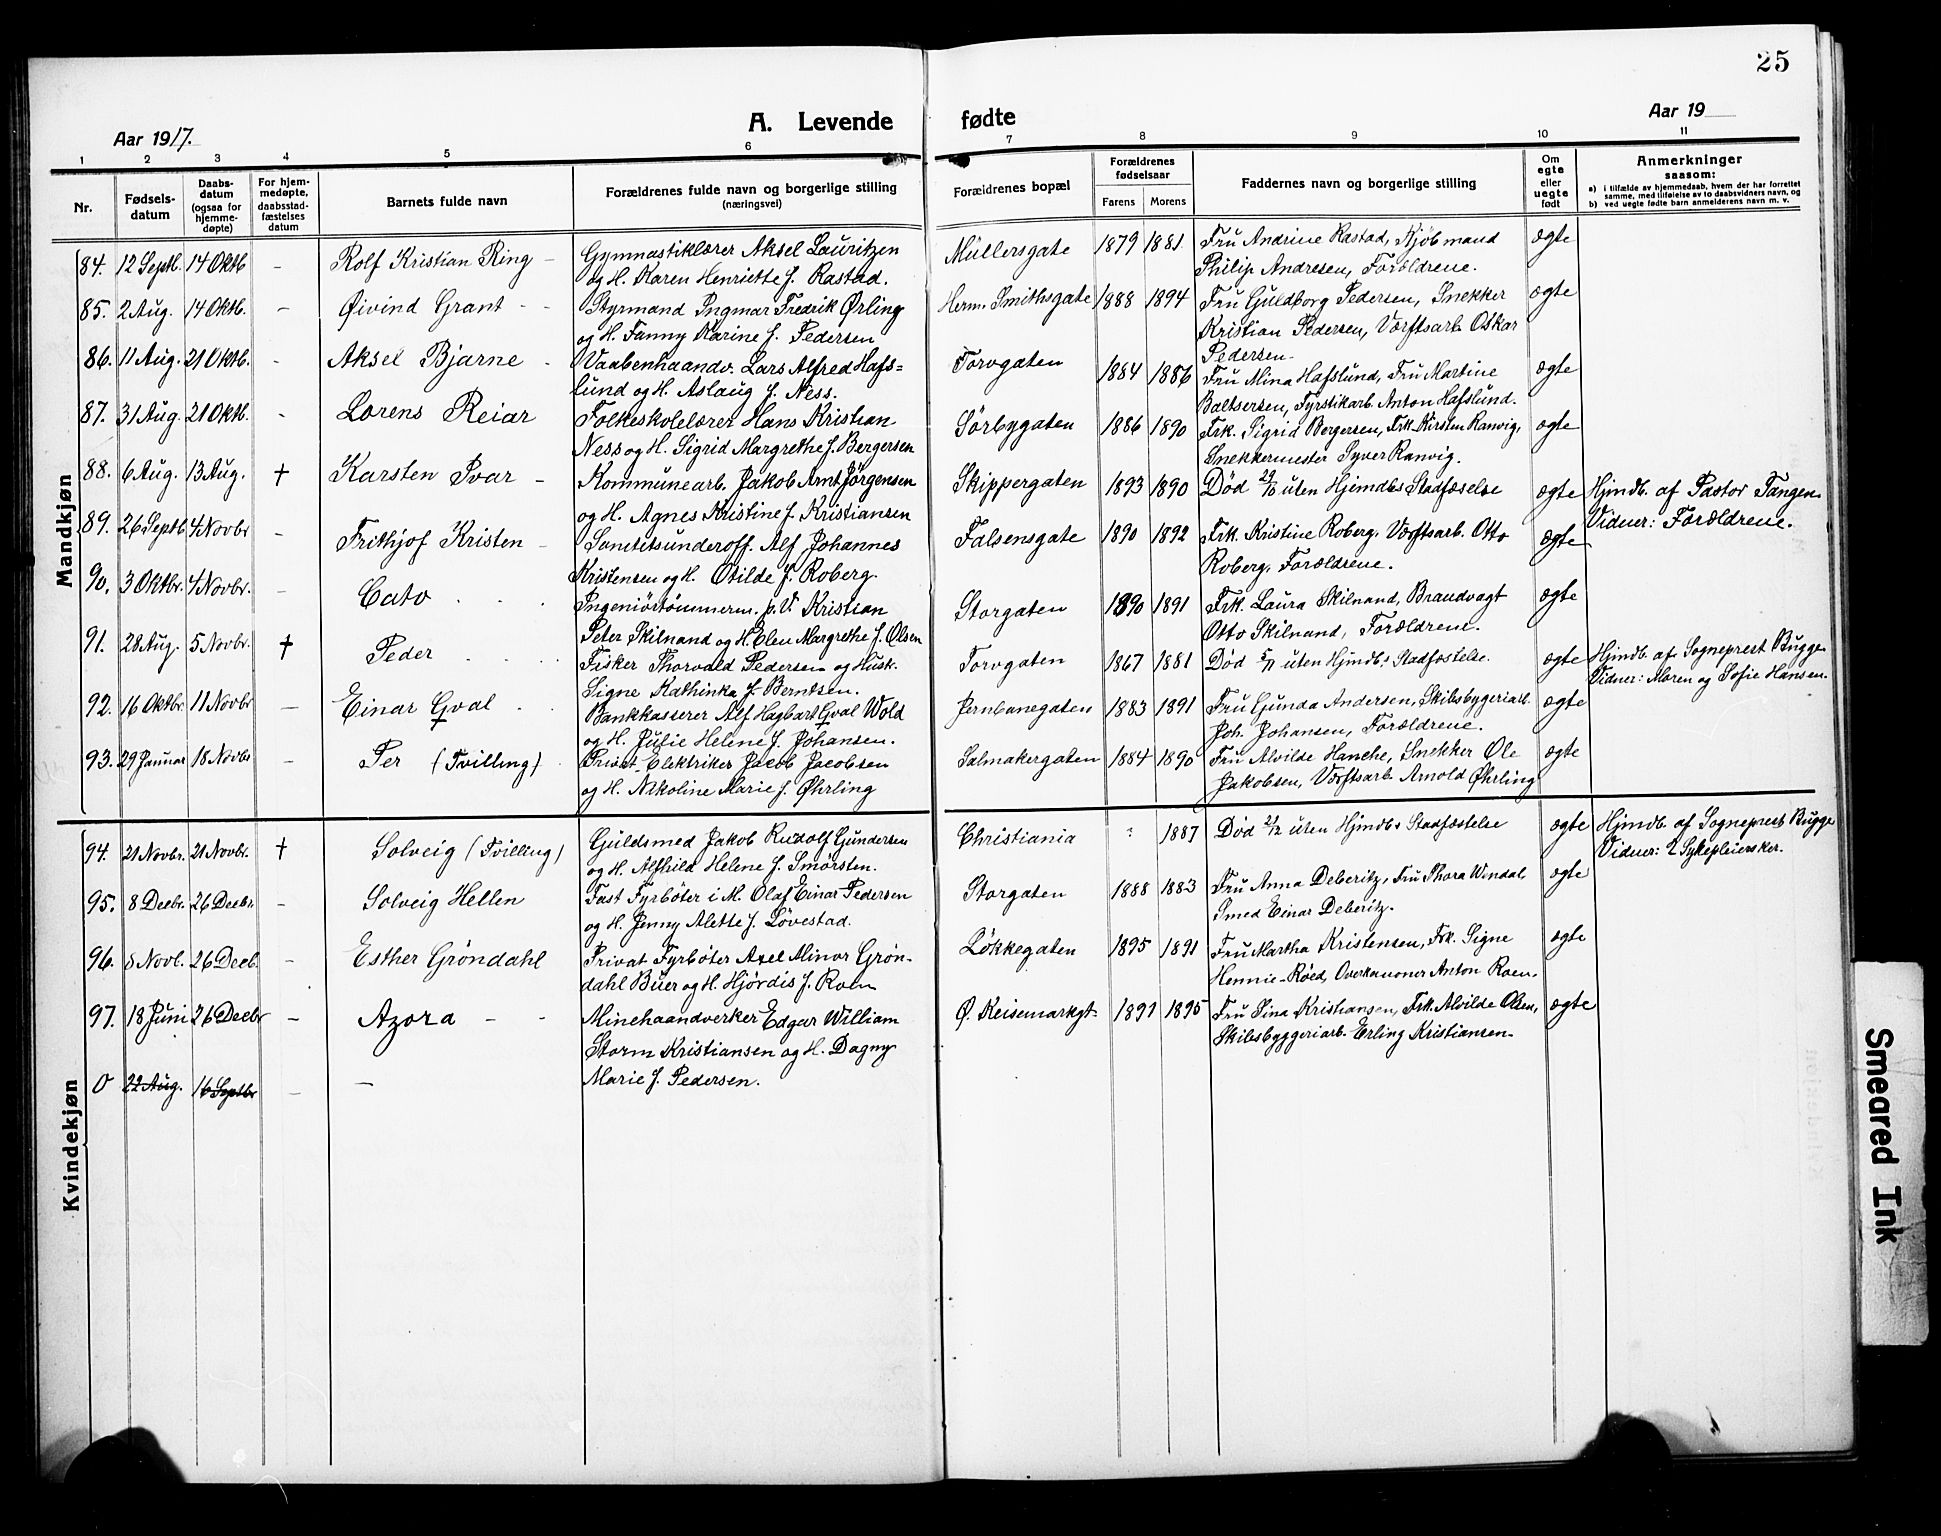 25
Aar 1917.
A. Levende fødte
Aar 19
1 2 3 4 5 6 7 8 9 10 11
Nr.
Fødsels-
datum
Daabs-
datum
(ogsaa for
hjemme-
døpte)
For hjem-
medøpte,
daabsstad-
fæstelses
datum
Barnets fulde navn
Forældrenes fulde navn og borgerlige stilling
(næringsvei)
Forældrenes bopæl
Forældrenes
fødselsaar
Farens Morens
Faddernes navn og borgerlige stilling
Om
egte
eller
uegte
født
Anmerkninger
saasom:
a) i tilfælde av hjemmedaab, hvem der har forrettet
samme, med tilføielse av to daabsvidners navn, og
b) ved uegte fødte barn anmelderens navn m. v.
Mandkjøn
84. 12 Septb. 14 Oktb - Rolf Kristian Ring - Gymnastiklærer Aksel Lauritzen Müllersgate 1879 1881 Fru Andrine Rastad, Kjøbmand ægte
og H. Karen Henriette f. Rastad. Philip Andresen, Forældrene.
85. 2 Aug. 14 Oktb. - Øivind Grant - - Styrmand Ingmar Fredrik Ørling Herm. Smithsgate 1888 1894 Fru Guldborg Pedersen, Snekker ægte
og H. Fanny Karine f. Pedersen Kristian Pedersen, Værftsarb. Oskar
Pedersen.
86. 11 Aug. 21 Oktb. - Aksel Bjarne - Vaabenhaandv. Lars Alfred Hafs= Torvgaten 1884 1886 Fru Mina Hafslund, Fru Martine ægte
lund og H. Aslaug f. Ness. Baltsersen, Fyrstikarb. Anton Hafslund.
87. 31 Aug. 21 Oktb. - Lorens Reiar Folkeskolelærer Hans Kristian Sørbygaten 1886 1890 Frk. Sigrid Bergersen, Frk. Kirsten Ranvig, ægte
Ness og H. Sigrid Margrethe f. Bergersen Snekkermester Syver Ranvig.
88. 6 Aug. 13 Aug. † Karsten Ivar - Kommunearb. Jakob Arnt Jørgensen Skippergaten 1893 1890 Død 29/10 uten Hjemdbs Stadfæselse ægte Hjmdb. af Pastor Tangen
og H. Agnes Kristine f. Kristiansen Vidner: Forældrene.
89. 26 Septb 4 Novbr - Frithjof Kristen - Sanitetsunderoff. Alf Johannes Falsensgate 1890 1892 Frk. Kristine Roberg, Værftsarb. Otto ægte
Kristensen og H. Otilde f. Roberg. Roberg, Forældrene.
90. 3 Oktbr. 4 Novbr. - Cato . . . Ingeniørtømmerm. p. V. Kristian Storgaten 1890 1891 Frk. Laura Skilnand, Brandvagt ægte
Peter Skilnand og H. Elen Margrethe f. Olsen Otto Skilnand, Forældrene.
91. 28 Aug. 5 Novbr. † Peder . . . Fisker Thorvald Pedersen og Hust. Torvgaten 1867 1881 Død 5/11 uten Hjmdb.s Stadfæstelse. ægte Hjmdb. af Sogneprest Bugge
Signe Kathinka f. Berntsen. Vidner: Moren og Sofie Hansen.
92. 16 Oktbr 11 Novbr - Einar Gval . . Bankkasserer Alf Hagbart Gval Wold Jernbanegaten 1883 1891 Fru Gunda Andersen, Skibsbygeriarb. ægte
og H. Julie Helene f. Johansen. Joh. Johansen, Forældrene.
93. 29 Januar 18 Novbr - Per (Tvilling) . Privat-Elektriker Jacob Jacobsen Salmakergaten 1884 1890 Fru Alvilde Hanche, Snekker Ole ægte
og H. Nikoline Marie f. Øhrling Jakobsen, Værftsarb. Arnold Øhrling
Kvindekjøn
94. 21 Novbr. 21 Novbr. † Solveig (Tvilling) Guldsmed Jakob Rudolf Gundersen Christiania ? 1887 Død 21/12 uten Hjmdbs Stadfæstelse ægte Hjmdb. af Sogneprest Bugge
og H. Alfhild Helene f. Smørsten. Vidner: 2 Sykepleiersker.
95. 8 Decbr. 26 Decbr. - Solveig Hellen Fast Fyrbøter i M. Olaf Einar Pedersen Storgaten 1888 1883 Fru Anna Deberitz, Fru Thora Windal ægte
og H. Jenny Alette f. Løvestad. Smed Einar Deberitz.
96. 8 Novb. 26 Decb. - Esther Grøndahl Privat Fyrbøter Axel Minor Grøn- Løkkegaten 1895 1891 Fru Martha Kristensen, Frk. Signe ægte
dahl Buer og H. Hjørdis f. Roen Hennie-Røed, Overkanoner Anton Roen.
97. 18 Juni 26 Decbr - Azora - - Minehaandverker Edgar William Ø. Keisemarkgt. 1891 1895 Fru Lina Kristiansen, Frk. Alvilde Olsen, ægte
Storm Kristiansen og H. Dagny Skibsbyggeriarb. Erling Kristiansen.
0 22 Aug. 16 Septbr - - Marie f. Pedersen.
Smeared Ink